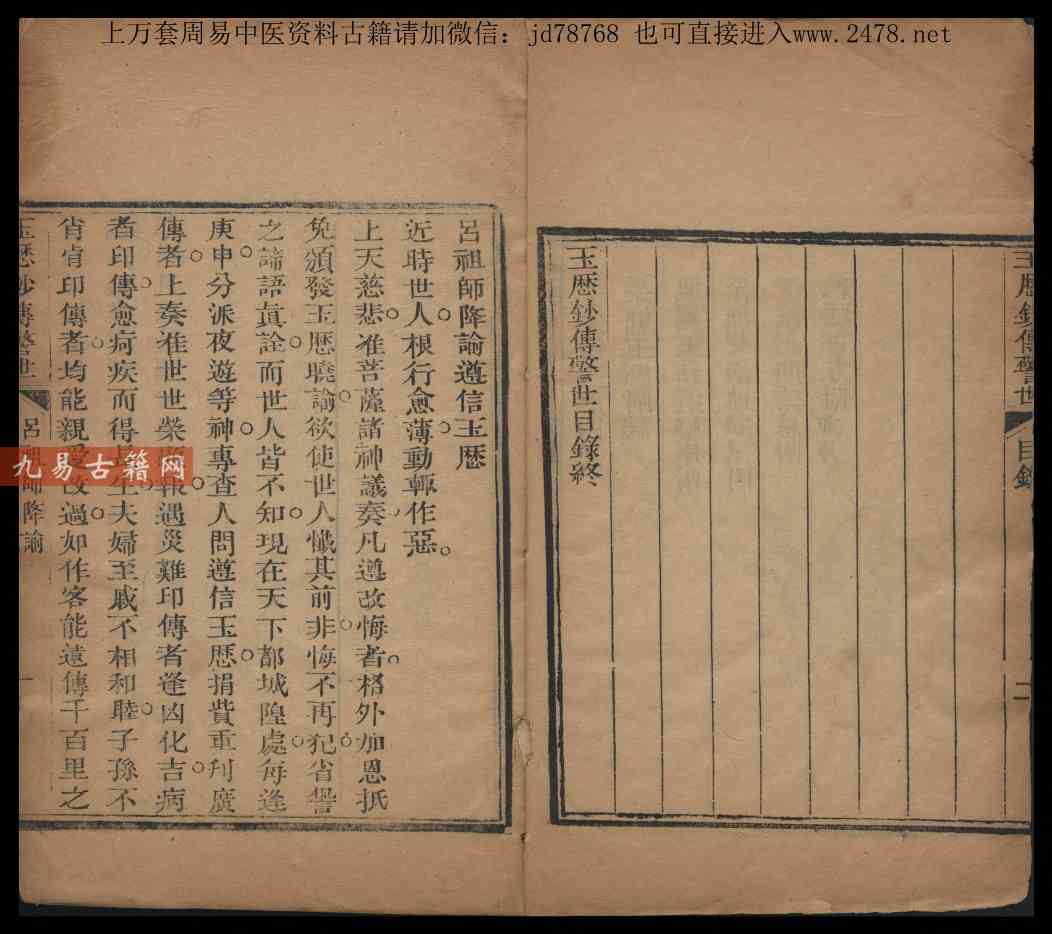 上万套周易中医资料古籍请加微信：jd78768 也可直接进入www.2478.net
玉歷鈔傳警世
目錄
二
玉歷鈔傳警世目錄終
呂祖師降諭遵信玉歷
近時世人根行愈薄動輒作惡
上天慈悲准菩薩諸神議奏凡遵改悔者格外加恩抵
免頒發玉歷曉諭欲使世人懺其前非悔不再犯省譽
之諦語眞詮而世人皆不知現在天下都城隍處每逢
庚申分派夜遊等神專查人間遵信玉歷捐貲重刋廣
傳者上奏准世世榮報遇災難印傳者逢凶化吉病
者印傳愈疴疾而得長生夫婦至戚不相和睦子孫不
肖肯印傳者均能親愛改過如作客能遠傳千百里之
玉歷鈔傳警世
呂祖師降諭
一
九易古籍网